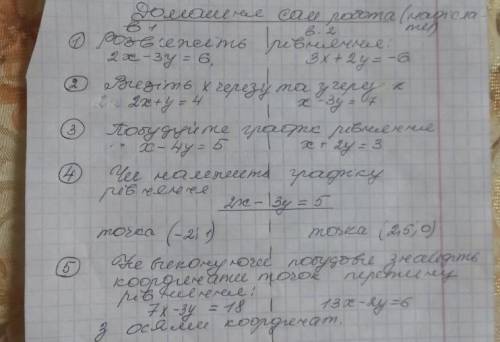 Домашня сам робота (надіслати)
В. 1 В. 2
① Розвяжіть рівняння:
2x-3y=6, 3x+2y=-6
② Виразіть x через y та y через x
2x+y=4 x-3y=7
③ Побудуйте графік рівняння
x-4y=5 x+2y=3
④ Чи належить графіку
рівняння
2x-3y=5
точка (-2;1) точка (2,5;0)
⑤ Не виконуючи побудови знайдіть
координати точок перетину
рівняння:
7x-3y=18 13x-2y=6
з осями координат.